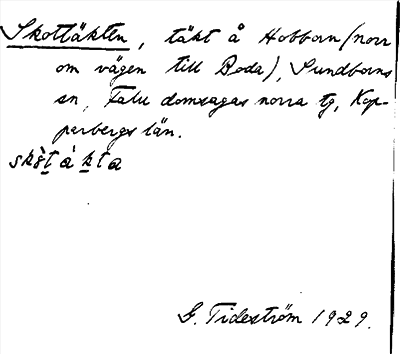 Skottäkten, täkt å Hobborn (norr
om vägen till Boda), Sundborns
sn, Falu domsagas norra tg, Kop-
parbergs län.
skòt̠ á k̠ta
G. Tideström 1929.